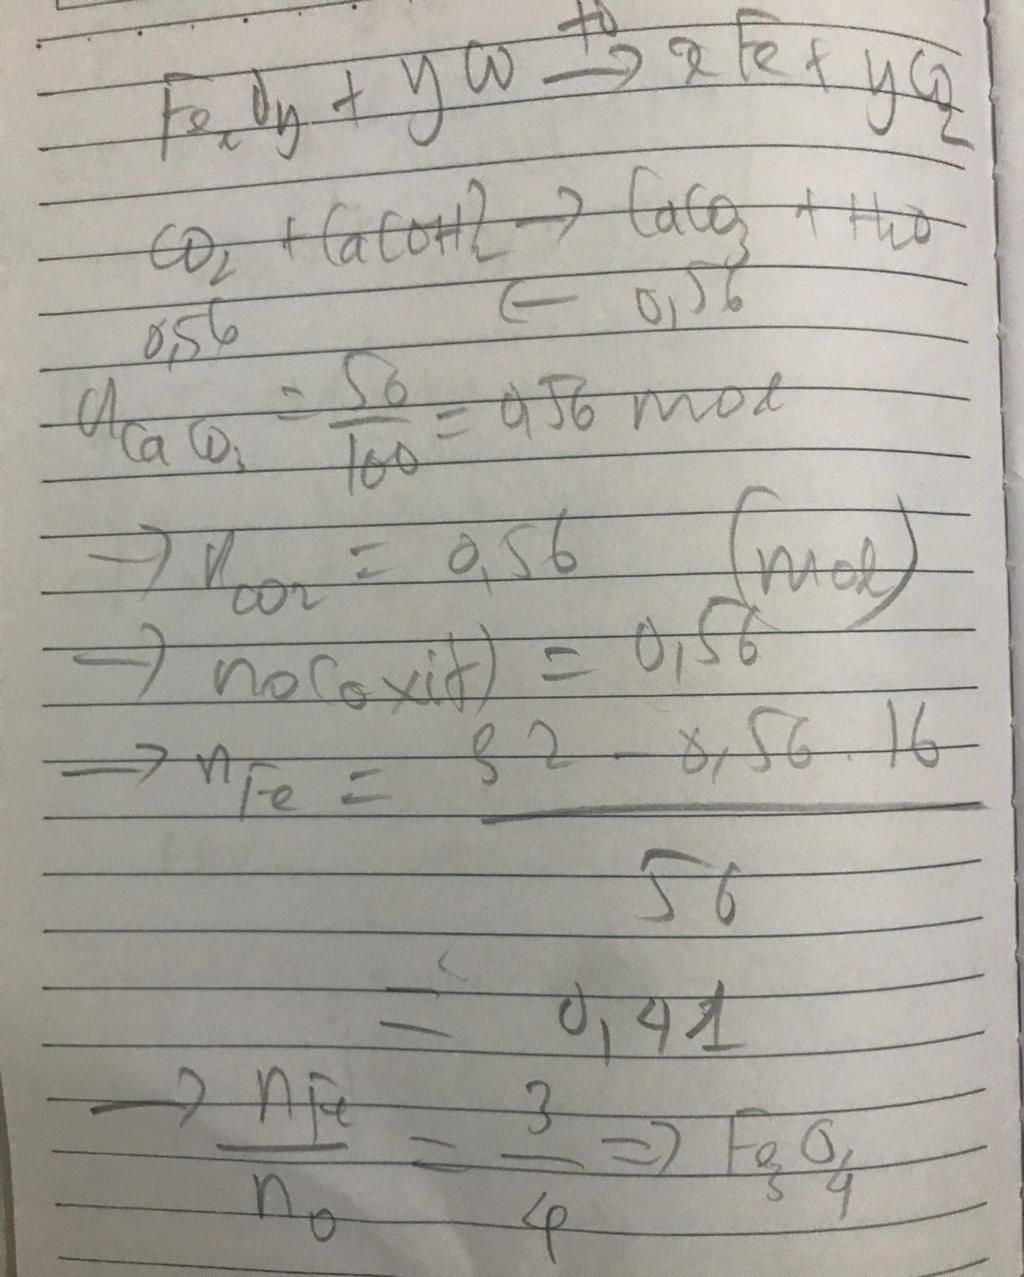 t⁰
FeₓOy + yCO → xFe + yCO₂
CO₂ + Ca(OH)₂ → CaCO₃ + H₂O
0,56 ← 0,56
nCaCO₃ = 56/100 = 0,56 mol
→ nCO₂ = 0,56 (mol)
→ nO(oxit) = 0,56
→ nFe = 32 - 0,56 . 16
56
= 0,41
→ nFe/nO = 3/4 => Fe₃O₄